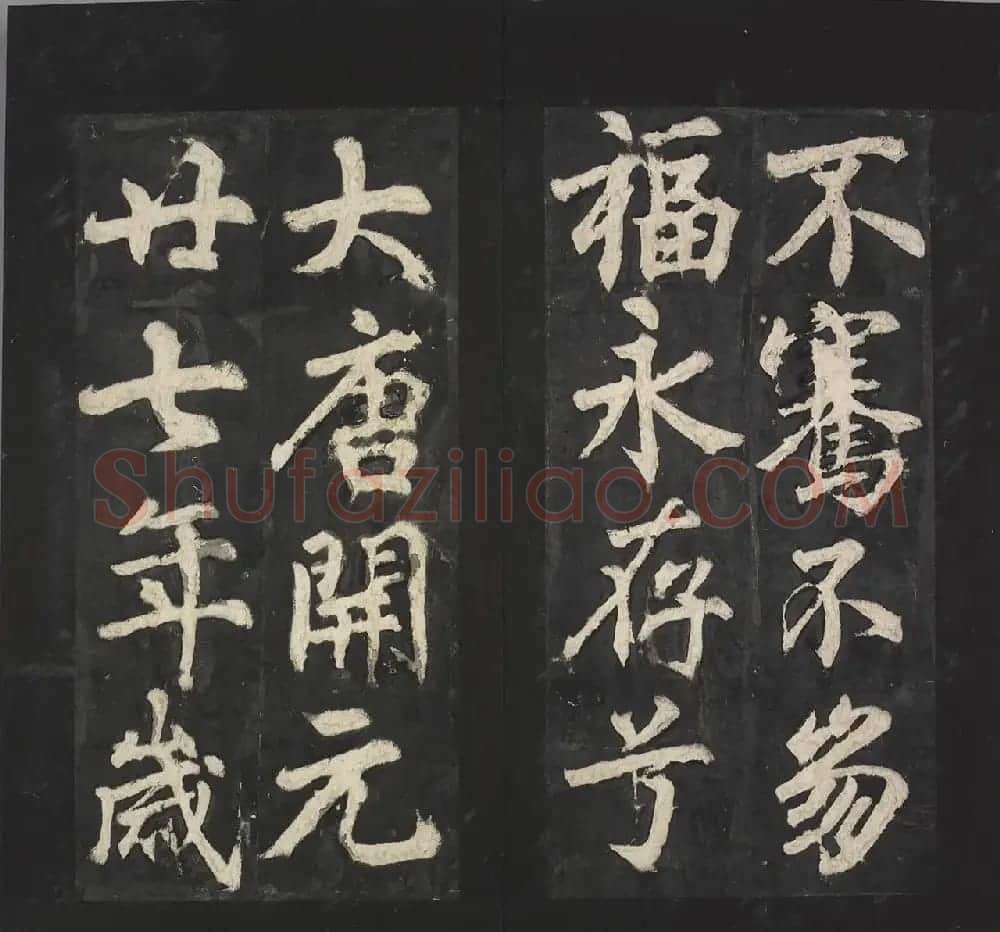 不騫不崩
福永存兮
大唐開元
廿七年歲
Shufaziliao.COM